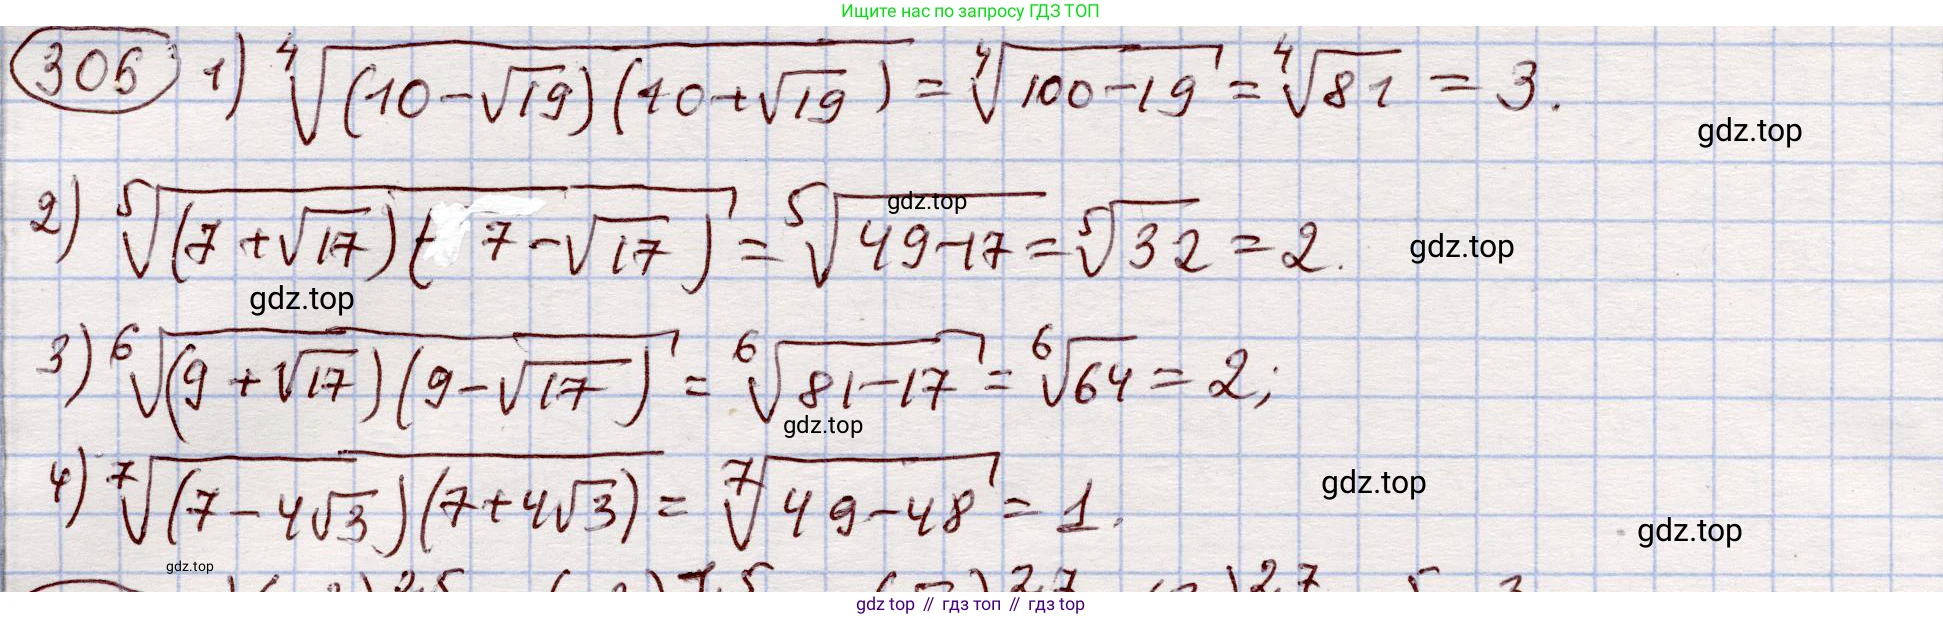 Ищите нас по запросу ГДЗ ТОП
306 1) ⁴√((10-√19)(10+√19)) = ⁴√(100-19) = ⁴√81 = 3.
gdz.top
2) ⁵√((7+√17)(7-√17)) = ⁵√(49-17) = ⁵√32 = 2.
gdz.top
gdz.top
gdz.top
3) ⁶√((9+√17)(9-√17)) = ⁶√(81-17) = ⁶√64 = 2;
gdz.top
4) ⁷√((7-4√3)(7+4√3)) = ⁷√(49-48) = 1.
gdz.top
gdz.top
gdz.top
gdz top // гдз топ // гдз top